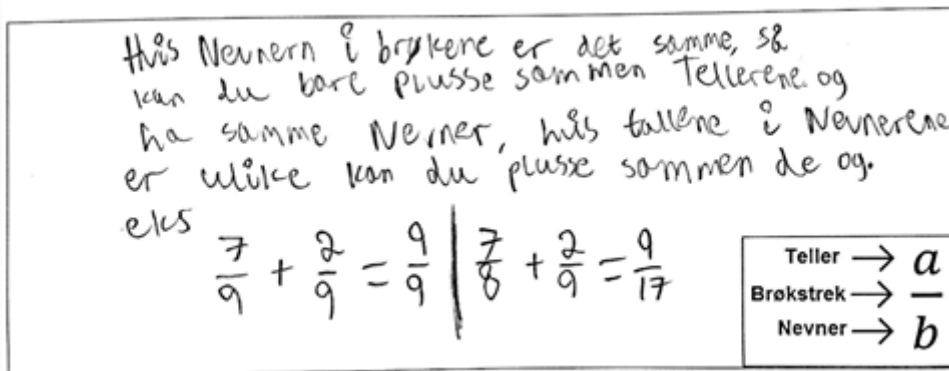 Hvis Nevnern i brøkene er det samme, så
kan du bare plusse sammen Tellerene og
ha samme Nevner, hvis tallene i Nevnerene
er ulike kan du plusse sammen de og.
eks
7/9 + 2/9 = 9/9 | 7/8 + 2/9 = 9/17
Teller → a
Brøkstrek → —
Nevner → b